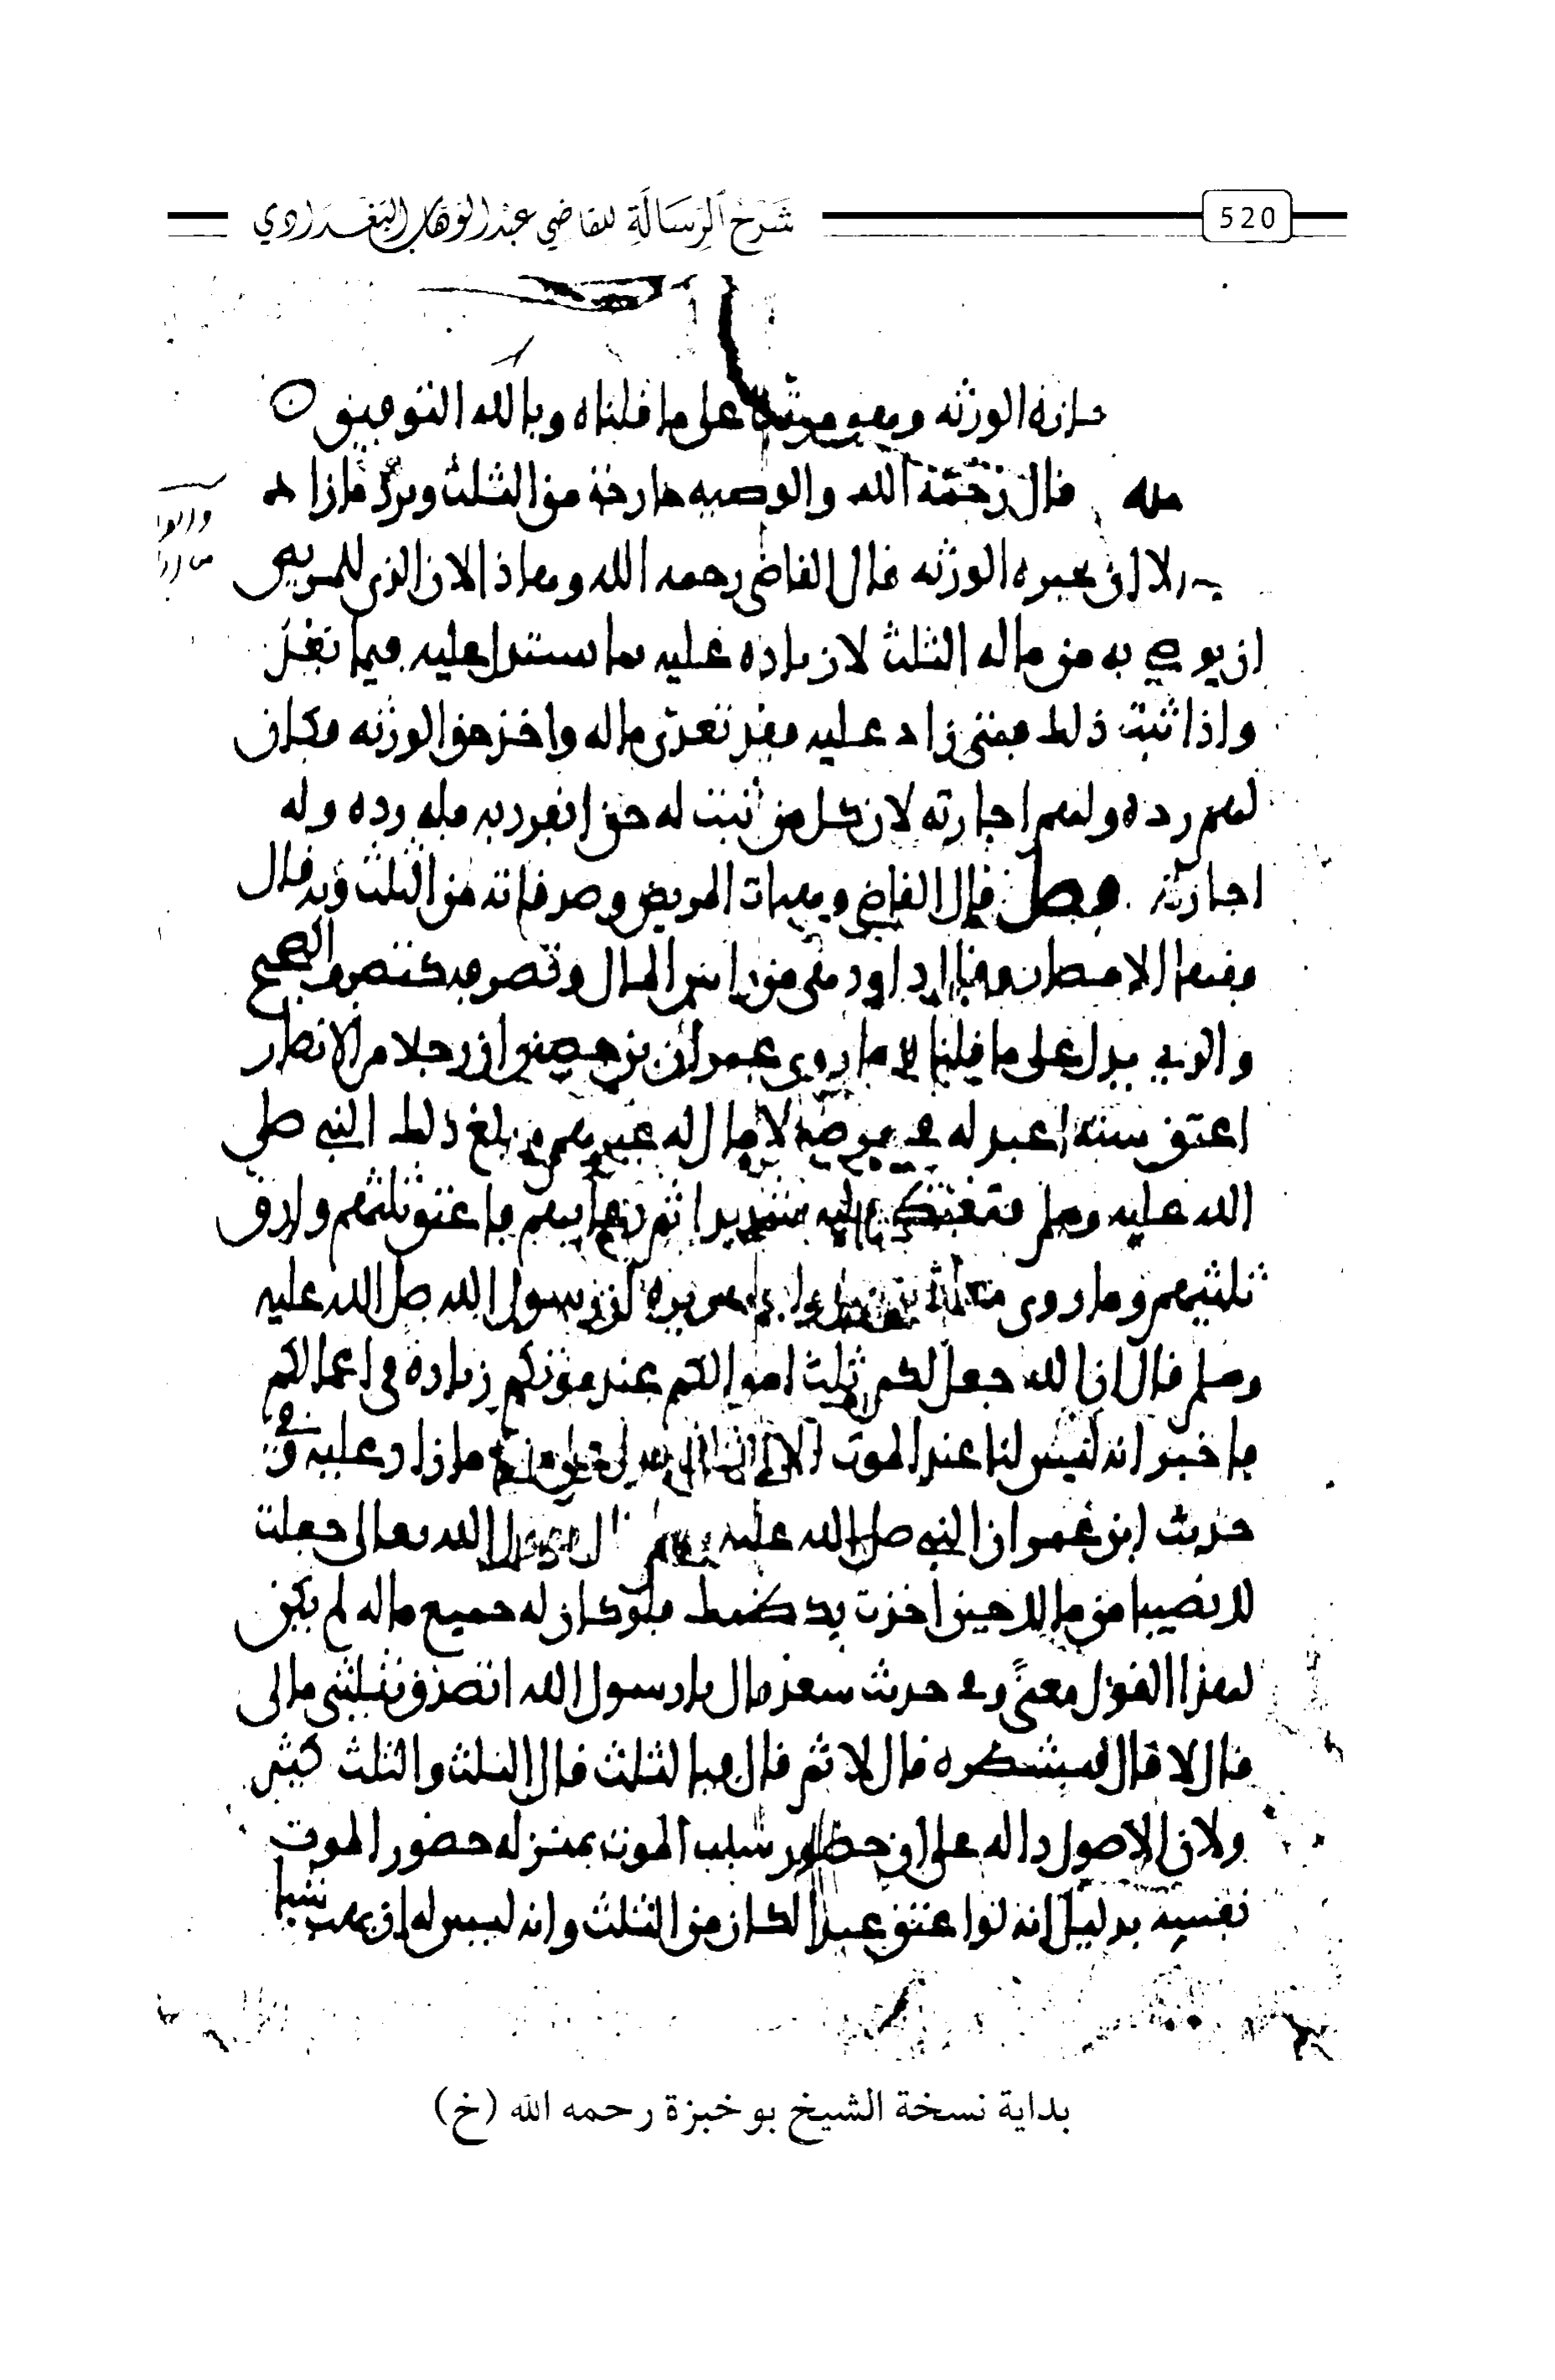 شَرْحُ الرِّسَالَةِ للقاضي عبد الوهاب البغدادي
520
الورثه وبالله التوفيق
قال رحمه الله والوصيه خارجة من الثلث ويرد ما زاد
الا ان يجيزه الورثه قال القاضي رحمه الله وهاذا لان الذي للمريض
ان يوصي به من ماله الثلث لان زياده عليه بما سنستدل عليه فيما بعد
واذا ثبت ذلك فمتى زاد عليه فقد تعدى ماله واخذ حق الورثه فكان
لهم رده ولهم اجازته لان كل من ثبت له حق انفرد به فله رده وله
اجازته فصل قال القاضي وهبات المريض وصدقاته من الثلث وبه قال
فقهاء الامصار وقال داود هي من راس المال وتصرفه كتصرف الصحيح
والذي يدل على ما قلناه ما روى عمران بن حصين ان رجلا من الانصار
اعتق ستة اعبد له في مرضه لا مال له غيرهم فبلغ ذلك النبي صلى
الله عليه وسلم شديدا ثم فاعتق ثلثهم وارق
ثلثيهم وما روى ان رسول الله صلى الله عليه
وسلم قال ان الله جعل لكم ثلث اموالكم عند موتكم زيادة في اعمالكم
فاخبر انه ليس لنا عند الموت الا ما زاد عليه وفي
حديث ابن عمر ان النبي صلى الله عليه الله تعالى جعلت
لك نصيبا من مالك حين اخذت بكظمك فلو كان له جميع ماله لم يكن
لهذا القول معنى وفي حديث سعد قال يا رسول الله اتصدق بثلثي مالي
قال لا قال فبشطره قال لا ثم قال فبالثلث قال الثلث والثلث كثير
ولان الاصول داله على ان حضور سبب الموت بمنزله حضور الموت
نفسه بدليل انه لو اعتق عبدا لكان من الثلث وانه ليس له ان يهب شيا
بداية نسخة الشيخ بو خبزة رحمه الله (خ)